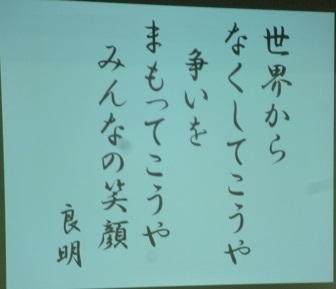 世界から
なくしてこうや
争いを
まもってこうや
みんなの笑顔
良明